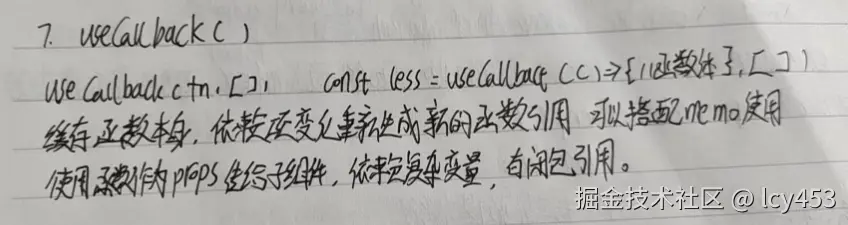 7. useCallback()
useCallback(fn, [], const less = useCallback(()=>{//函数体}, [])
缓存函数本身, 依赖项变化重新生成新的函数引用 可以搭配memo使用
使用函数作为props传给子组件, 依赖复杂变量, 有闭包引用。
掘金技术社区 @ lcy453